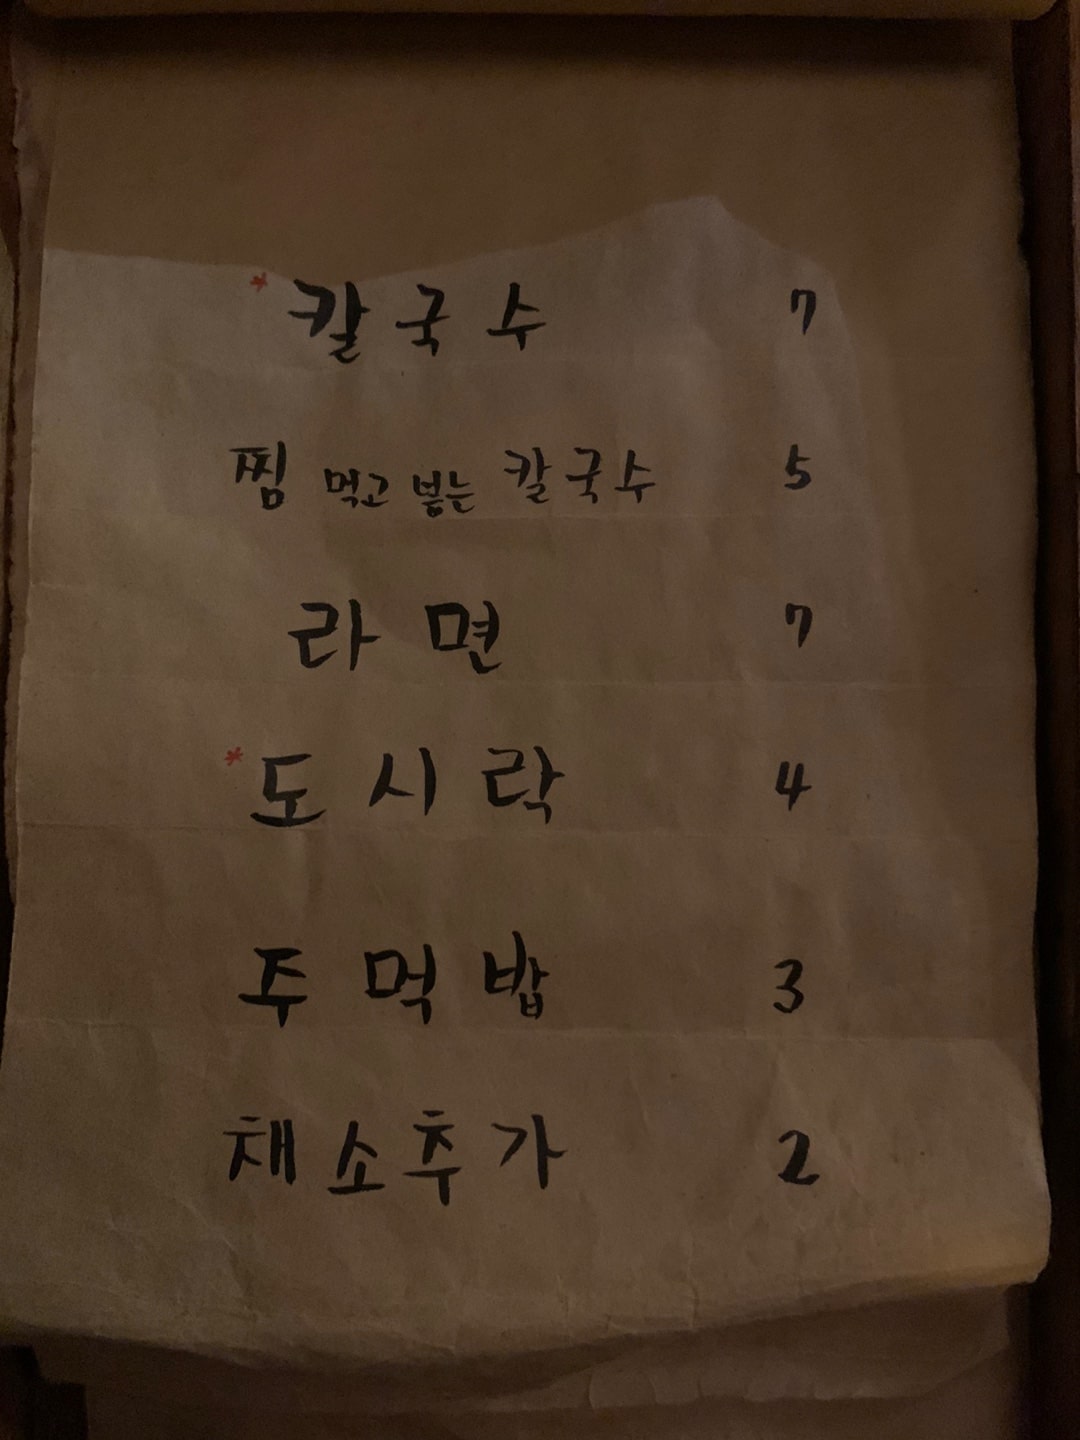 *칼국수 7
찜 먹고 넣는 칼국수 5
라면 7
*도시락 4
주먹밥 3
채소추가 2